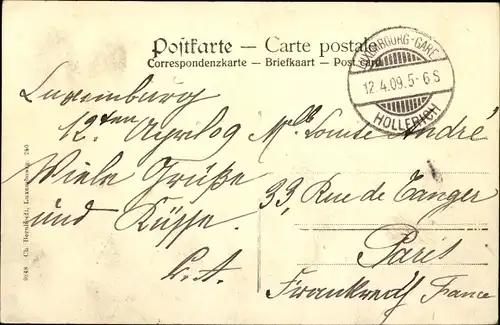 Postkarte — Carte postale
Correspondenzkarte — Briefkaart — Post card
LUXEMBOURG-GARE
12.4.09. 5-6 S
HOLLERICH
Luxemburg
12ten April 09
Viele Grüße
und Küsse.
L. A.
Mlle Louise André
33, Rue de Tanger
Paris
Frankreich France
Ch. Bernhoeft, Luxembourg